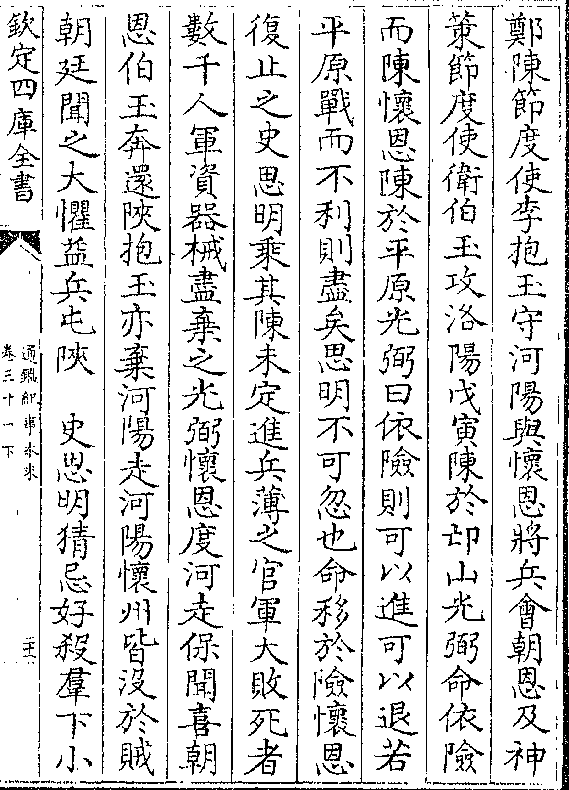 鄭陳節度使李抱玉守河陽與懷恩將兵會朝恩及神
策節度使衛伯玉攻洛陽戊寅陳於邙山光弼命依險
而陳懷恩陳於平原光弼曰依險則可以進可以退若
平原戰而不利則盡矣思明不可忽也命移於險懷恩
復止之史思明乘其陳未定進兵薄之官軍大敗死者
數千人軍資器械盡棄之光弼懷恩度河走保聞喜朝
恩伯玉奔還陜抱玉亦棄河陽走河陽懷州皆沒於賊
朝廷聞之大懼益兵屯陜 史思明猜忌好殺羣下小
欽定四庫全書
通鑑紀事本末
卷三十一下